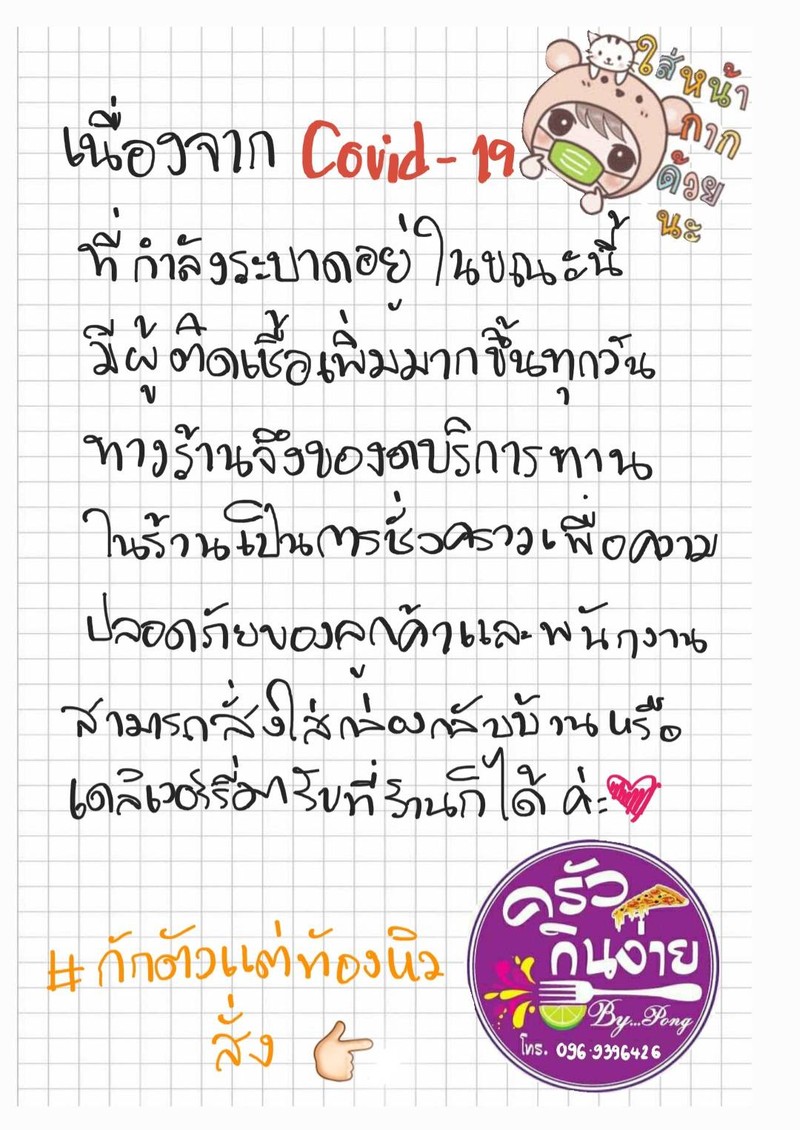 ใส่หน้า
กาก
ด้วย
นะ
เนื่องจาก Covid-19
ที่กำลังระบาดอยู่ในขณะนี้
มีผู้ติดเชื้อเพิ่มมากขึ้นทุกวัน
ทางร้านจึงของดบริการทาน
ในร้านเป็นการชั่วคราวเพื่อความ
ปลอดภัยของลูกค้าและพนักงาน
สามารถสั่งใส่กล่องกลับบ้านหรือ
เดลิเวอร์รี่มารับที่ร้านก็ได้ค่ะ
#กักตัวแต่ท้องหิว
สั่ง
ครัว
กินง่าย
By...Pong
โทร. 096-9396426